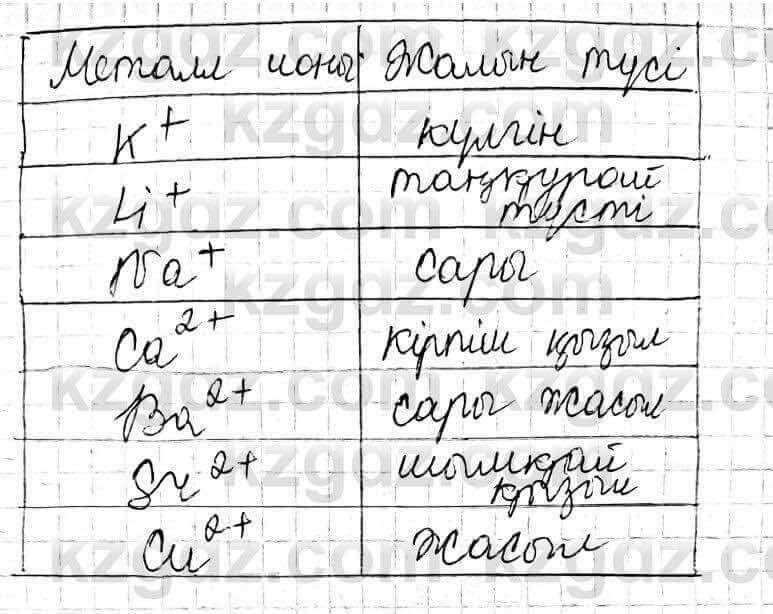 Металл ионы Жалын түсі
K+ күлгін
Li+ таңқурай
түсті
Na+ сары
Ca2+ кірпіш қызыл
Ba2+ сары жасыл
Sr2+ шымқай
қызыл
Cu2+ жасыл
kzgdz.com